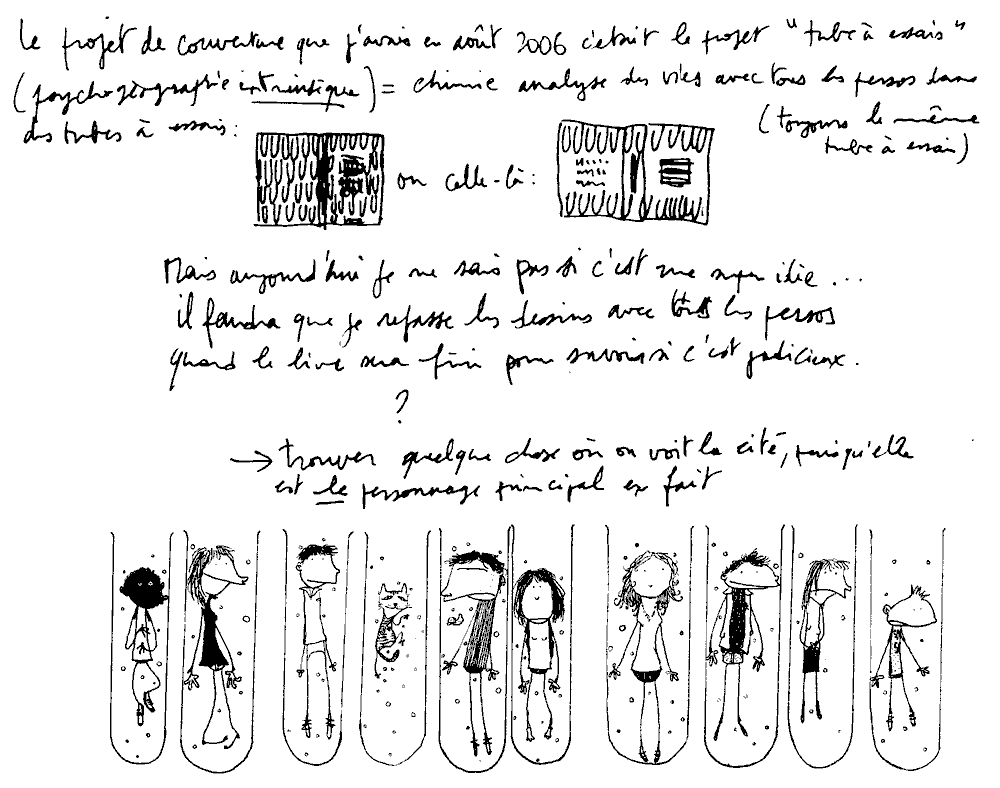 Le projet de couverture que j'avais en août 2006 c'était le projet "tube à essais"
(psychogéographie intrinsèque) = chimie analyse des vies avec tous les persos dans
des tubes à essais :
(toujours le même
tube à essai)
ou celle-là :
Mais aujourd'hui je ne sais pas si c'est une super idée ...
il faudra que je refasse les dessins avec tous les persos
quand le livre sera fini pour savoir si c'est judicieux.
?
→ trouver quelque chose où on voit la cité, puisqu'elle
est le personnage principal en fait